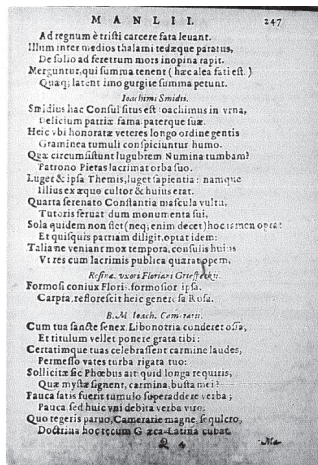 MANLII. 247
Ad regnum è tristi carcere fata leuant.
Illum inter medios thalami tedæque paratus,
De solio ad feretrum mors inopina rapit.
Merguntur, qui summa tenent (hæc alea fati est.)
Quàq; latent imo gurgite summa petunt.
Ioachimi Smidis.
Smidius hac Consul situs est Ioachimus in vrna,
Delicium patriæ fama paterque suæ.
Heic vbi honoratæ veteres longo ordine gentis
Graminea tumuli conspiciuntur humo.
Quæ circumsistunt lugubrem Numina tumbam?
Patrono Pietas lacrimat orba suo.
Luget & ipsa Themis, luget sapientia: namque
Illius ex æquo cultor & huius erat.
Quarta serenato Constantia mascula vultu,
Tutoris seruat dum monumenta sui,
Sola quidem non flet (neq; enim decet) hoc tamen optat
Et quisquis patriam diligit, optat idem:
Taliane veniant mox tempora, consulis huius
Vt res cum lacrimis publica quærat opem,
Rosinæ, vxori Floriani
Formosi coniux Flori, formosior ipsa.
Carpta, reflorescit heic generosa Rosa.
B. M. Ioach. Camerarii.
Cum tua sancte senex, Libonotria conderet ossa,
Et titulum vellet ponere grata tibi:
Certatimque tuas celebrassent carmine laudes,
Permesso vates turba rigata tuo:
Sollicitæ sic Phœbus ait quid longa requiris,
Quæ mystæ signent, carmina, busta mei?
Pauca satis fuerit tumulo superaddere verba;
Pauca sed huic vni debita verba viro:
Quo tegeris paruo, Camerarie magne, sepulcro,
Doctrina hoc tecum Græca-Latina cubat.
Q 4 Ma-